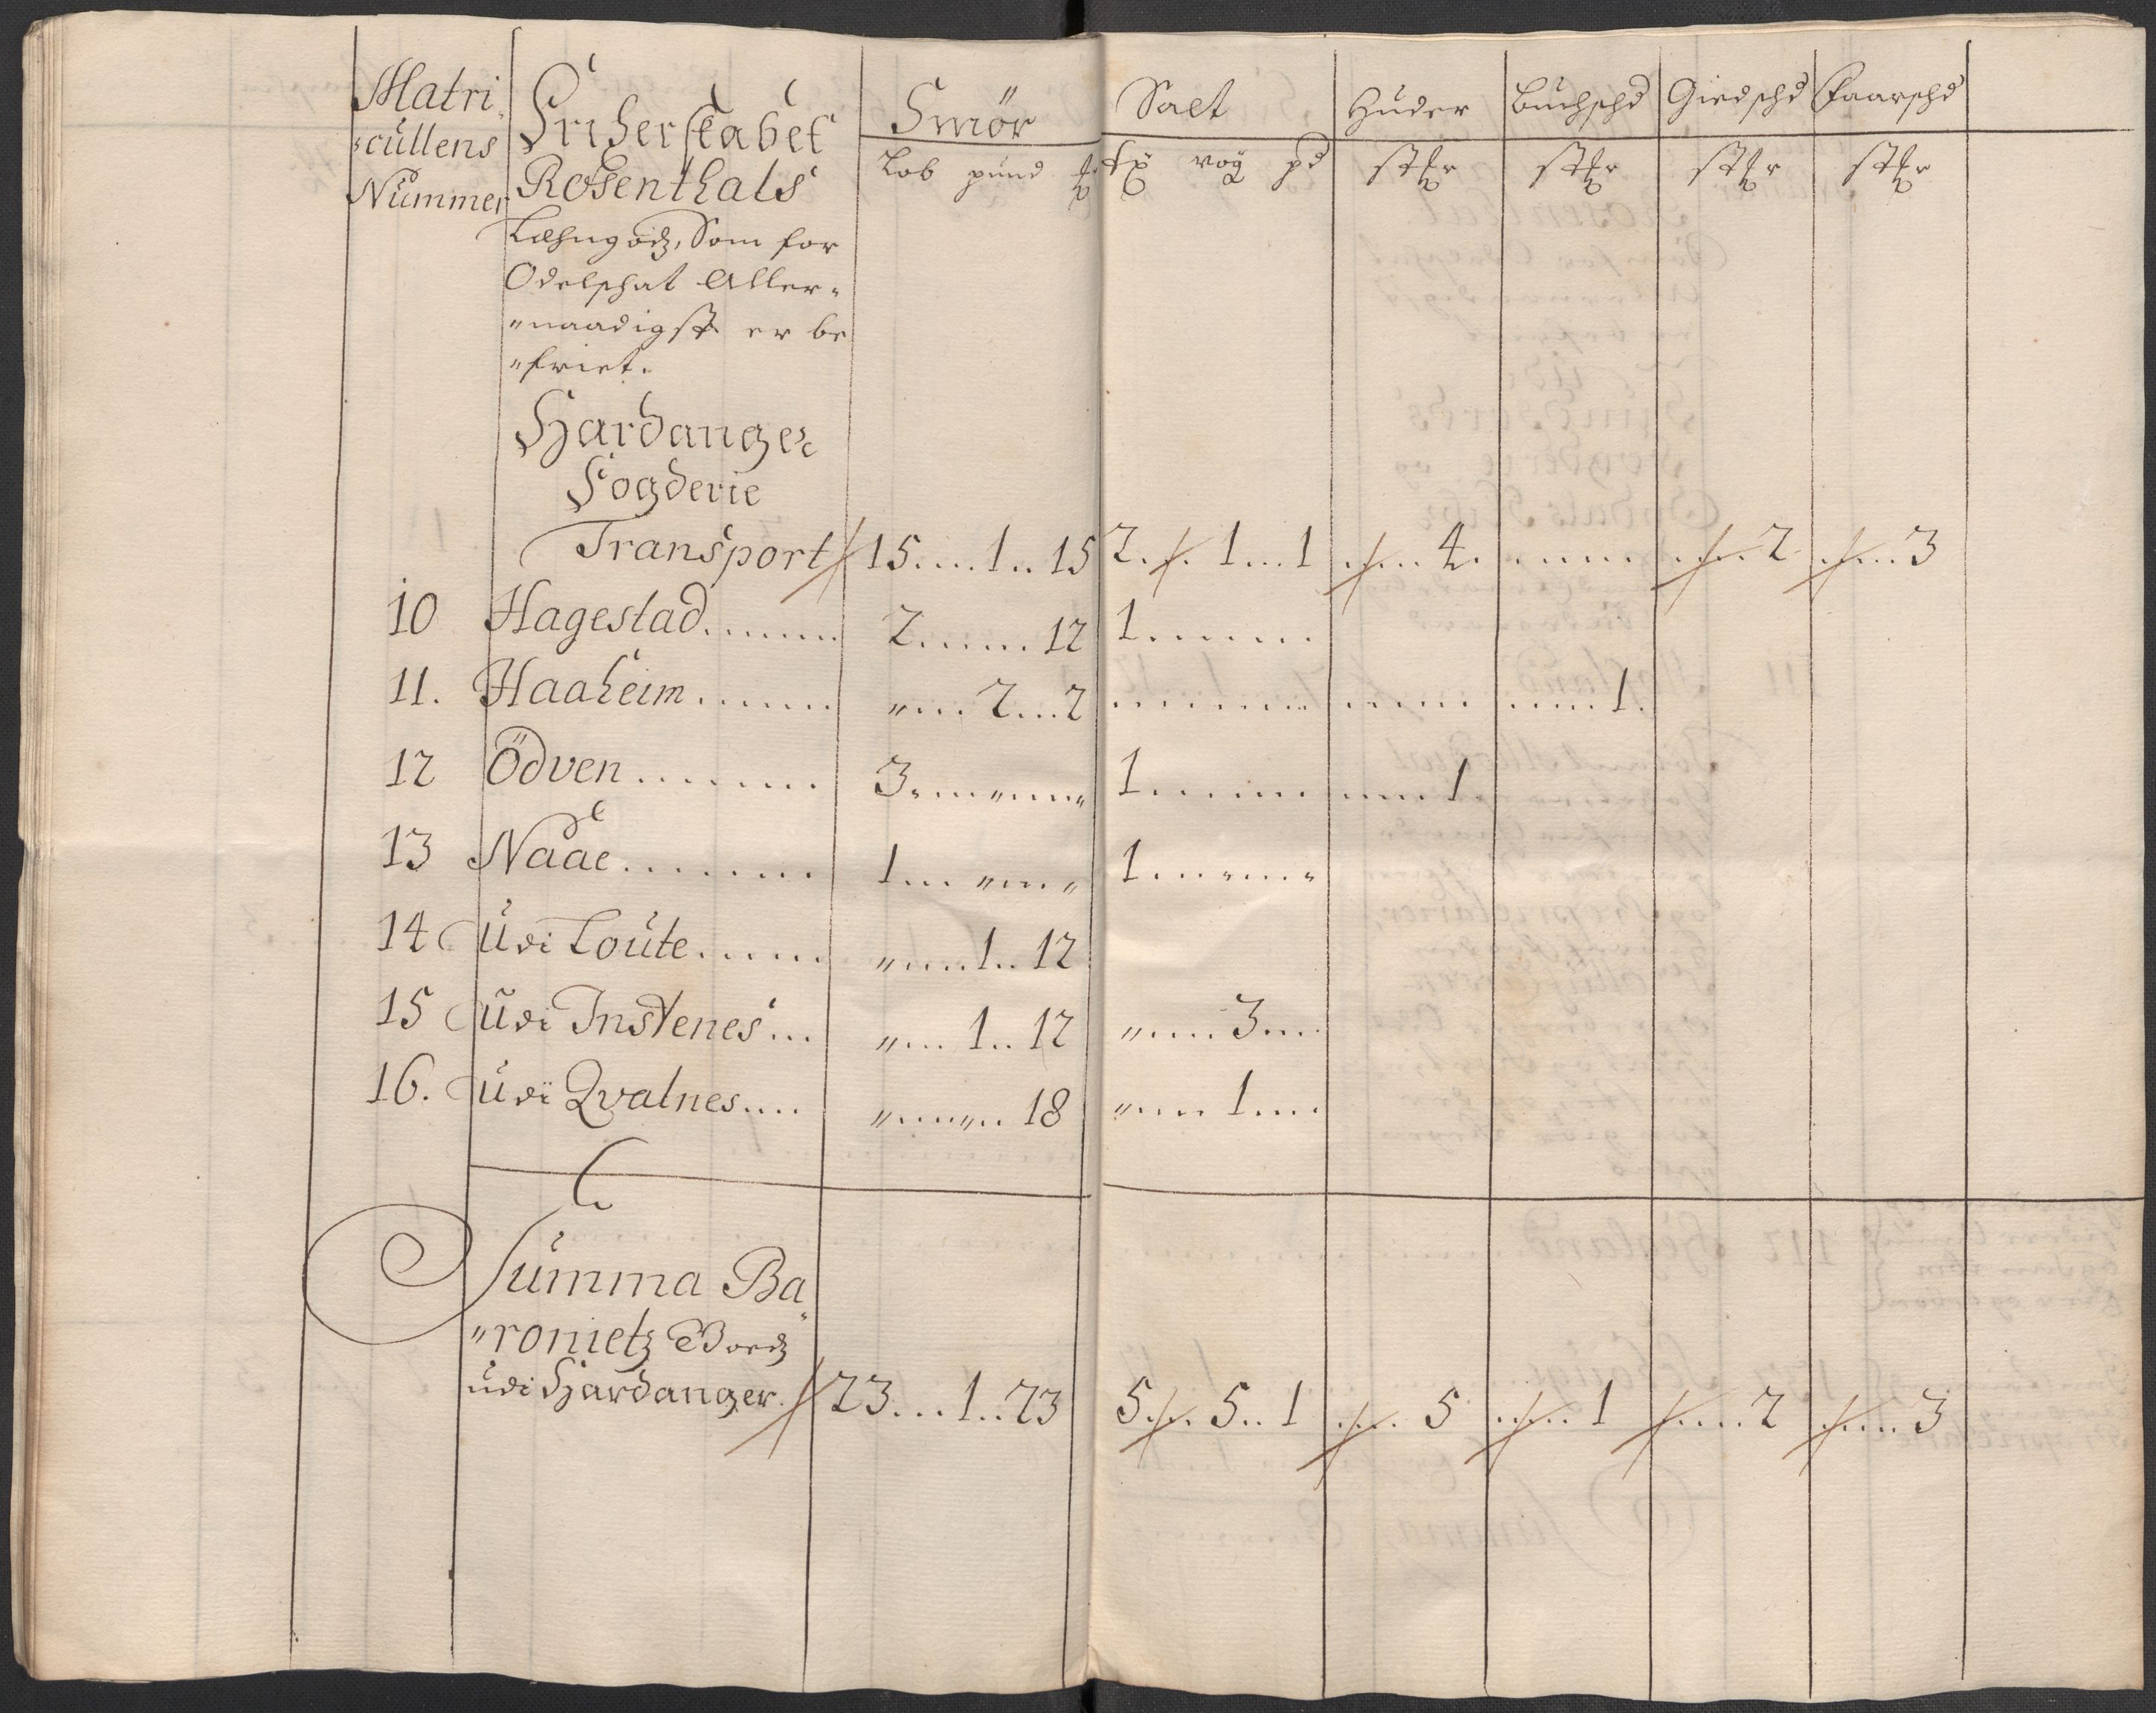 Matri
cullens
Nummer
Friherskabet
Rosenthals
Læhngodz, Som for
Odelschat Aller-
naadigst er be
friet.
Hardanger
Fogderie
Smör
Lob pund
Salt
vog pd
Huder
Buchschd
Giedschd
Faarschd
Transport 15....1..15 2... 1...1 ....4. ...... ....2 ....3
10 Hagestad....... 2......12 1.......
11. Haaheim....... "...2...2 ........ ..... .....1.
12 Ödven........ 3........ 1....... ....1
13 Naae........ 1... "..." 1.......
14 Udi Loute...... "....1..12
15 Udi Instenes... "...1..12 "....3...
16. Udi Qvalnes.... ".....18 "...1...
Summa Ba
"ronietz Godz
udi Hardanger. 23...1..23 5... 5..1 .... 5 ....1 ....2 ....3